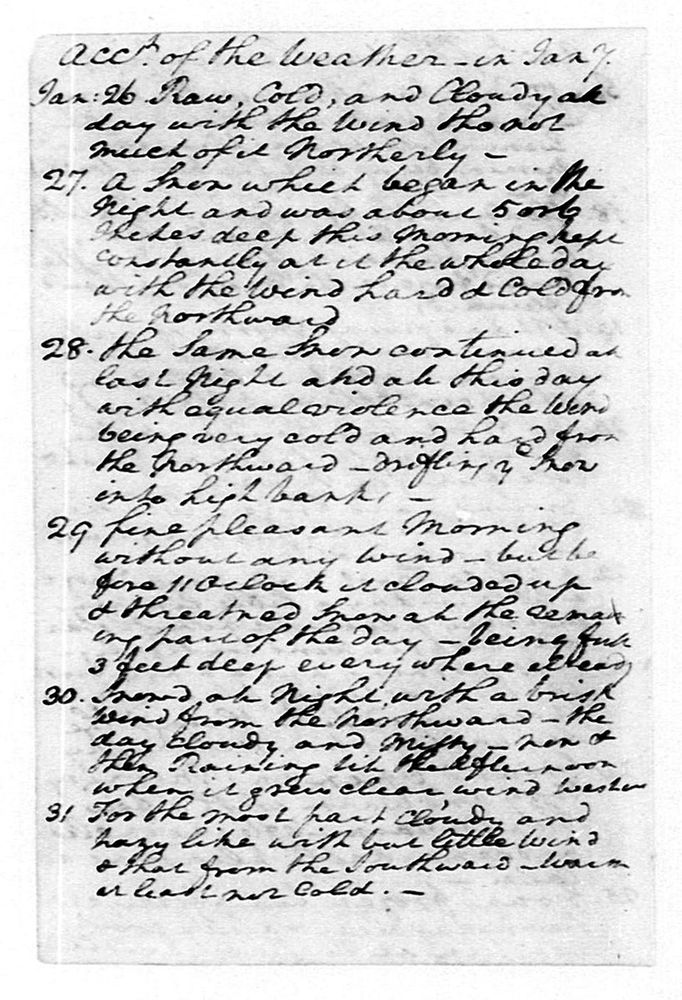 Acct. of the Weather - in Jany.
Jan: 26 Raw, Cold, and Cloudy all
day with the Wind tho not
much of it Northerly -
27. A Snow which began in the
Night and was about 5 or 6
Inches deep this Morning kept
constantly at it the whole day
with the Wind hard & Cold from
the Northward
28. the Same Snow continued all
last Night and all this day
with equal violence the Wind
being very cold and hard from
the Northward - drifting ye Snow
into high banks -
29 fine pleasant Morning
without any Wind - but be
fore 11 Oclock it clouded up
& threatned Snow all the remain
ing part of the day - being full
3 feet deep every where already
30. Snow'd all Night, with a brisk
Wind from the Northward - the
day cloudy and Misty - now &
then Raining till the Afternoon
when it grew clear wind Western
31 For the most part cloudy and
hazy like with but little Wind
& that from the Southward - warm
at least not Cold. -